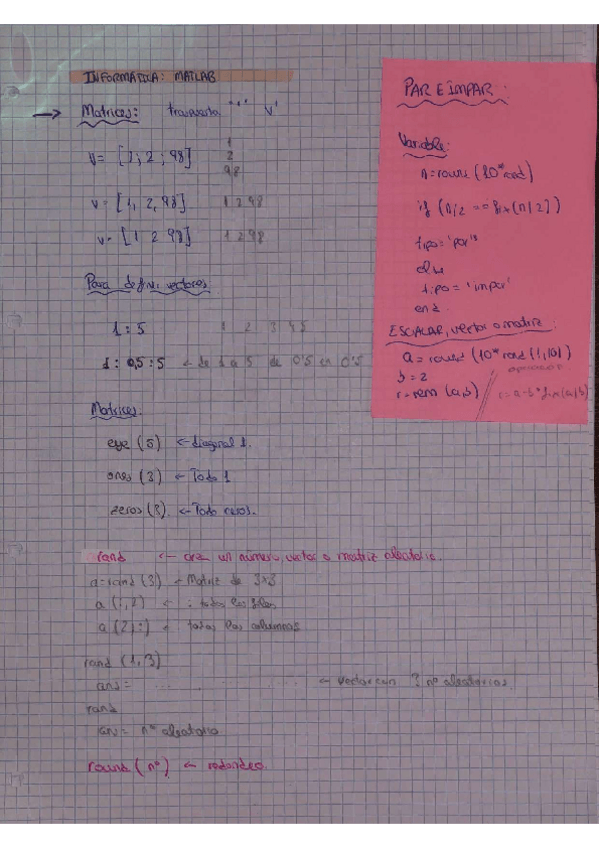 INFORMÁTICA: MATLAB
→ Matrices: traspuesta "'" v'
v= [1; 2; 98]
1
2
98
v= [1, 2, 98] 1 2 98
v= [1 2 98] 1 2 98
Para definir vectores
1:5 1 2 3 4 5
1: 0,5 : 5 ← de 1 a 5 de 0'5 en 0'5
Matrices:
eye (5) ← diagonal 1.
ones (3) ← Todo 1
zeros (3) ← Todo ceros.
rand ← crea un número, vector o matriz aleatoria.
a=rand (3) ← Matriz de 3x3
a (:,2) ← : todas las filas
a (2,:) ← todas las columnas
rand (1,3)
ans = ... ← vector con 3 nº aleatorios
rand
ans= nº aleatorio
round (nº) ← redondeo.
PAR E IMPAR:
Variable:
n=round (10*rand)
if (n/2 == fix(n/2))
tipo='par'
else
tipo= 'impar'
end
ESCALAR, vector o matriz:
a = round (10* rand (1,10))
b=2
r=rem (a,b) // r=a-b*fix(a/b)